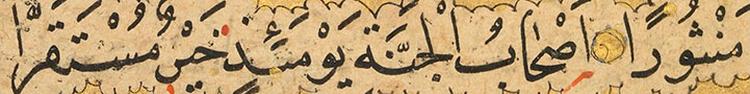 مَنْثُورًا ۝ اَصْحَابُ الْجَنَّةِ يَوْمَئِذٍ خَيْرٌ مُسْتَقَرًّا